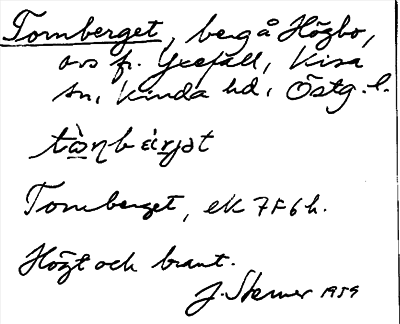 Tornberget, berg å Högbo,
avs fr. Grefall, Kisa
sn, Kinda hd, Östg. l.
Tornberget, ek 7F6h.
Högt och brant.
J. Stemer 1959